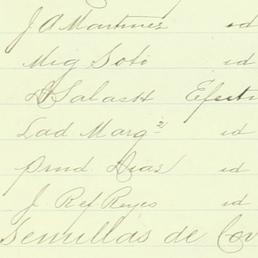 J A Martinez id
Mig Soto id
Salash
Lad Marqz id
Prud Dias id
J. Ref Reyes id
Semillas de Cov